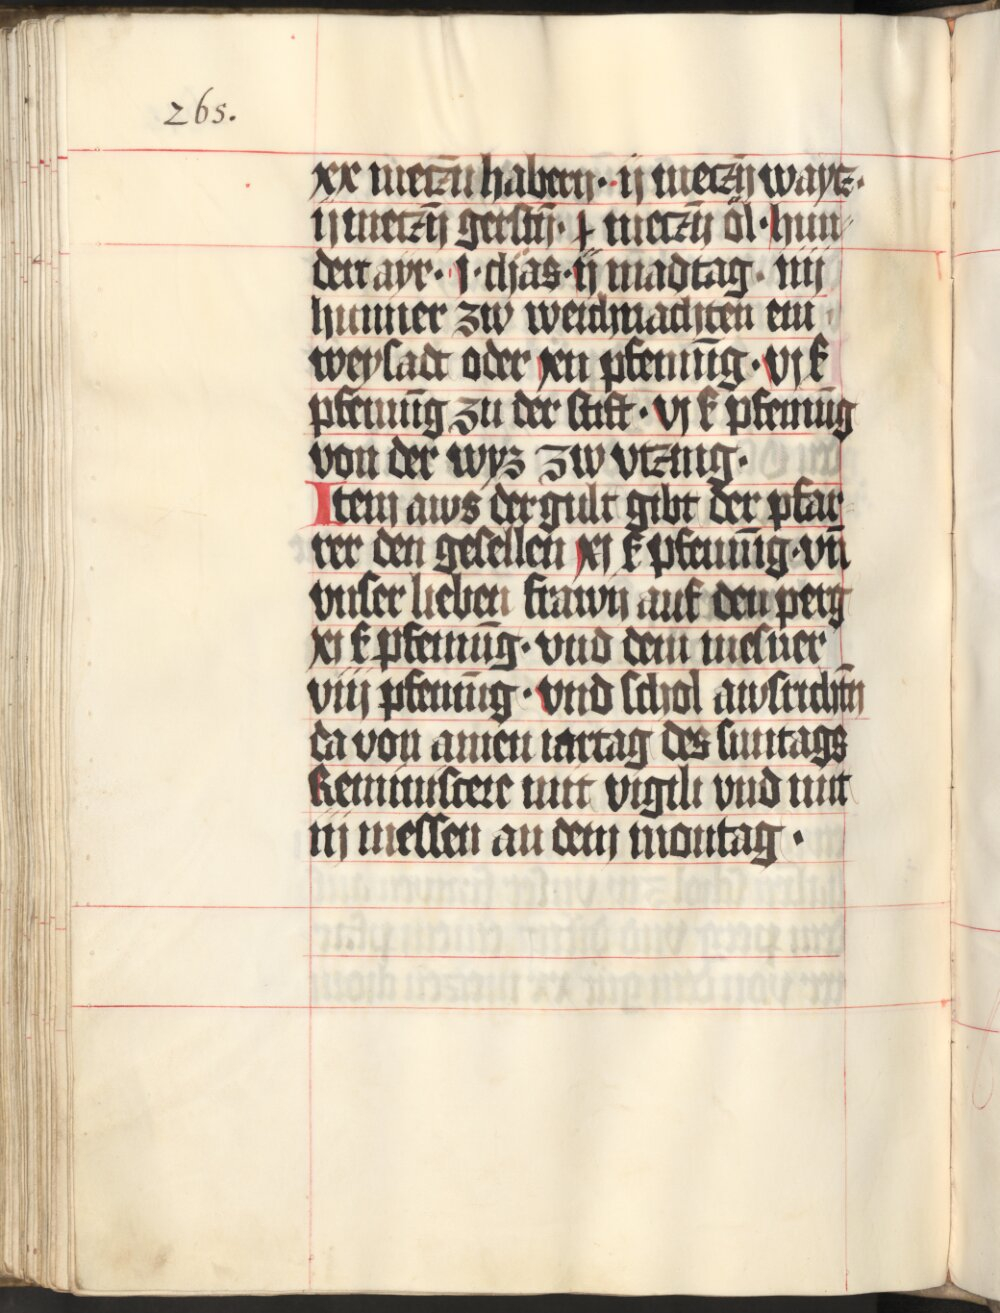 265.
xx metzn̄ habern · ij metzn̄ waytz ·
ij metzn̄ gerstn̄ · ɉ metzn̄ öl · hun
dert ayr · j · chäs · ij madtag · iiij
hunner zw weichnachten ein
weysadt oder xii pfenning · vj ß
pfenīng zu der stift · vj ß pfenīng
von der wyz zw vtzing ·
Item aws der gult gibt der pfar
rer den gesellen xj ß pfenīng · vn̄
vnser lieben frawn auf den perg
xj ß pfenīng · vnd dem mesner
viij pfenīng · vnd schol awsrichtn̄
da von ainen iartag des suntags
Reminiscere mit vigili vnd mit
iij messen an dem montag ·